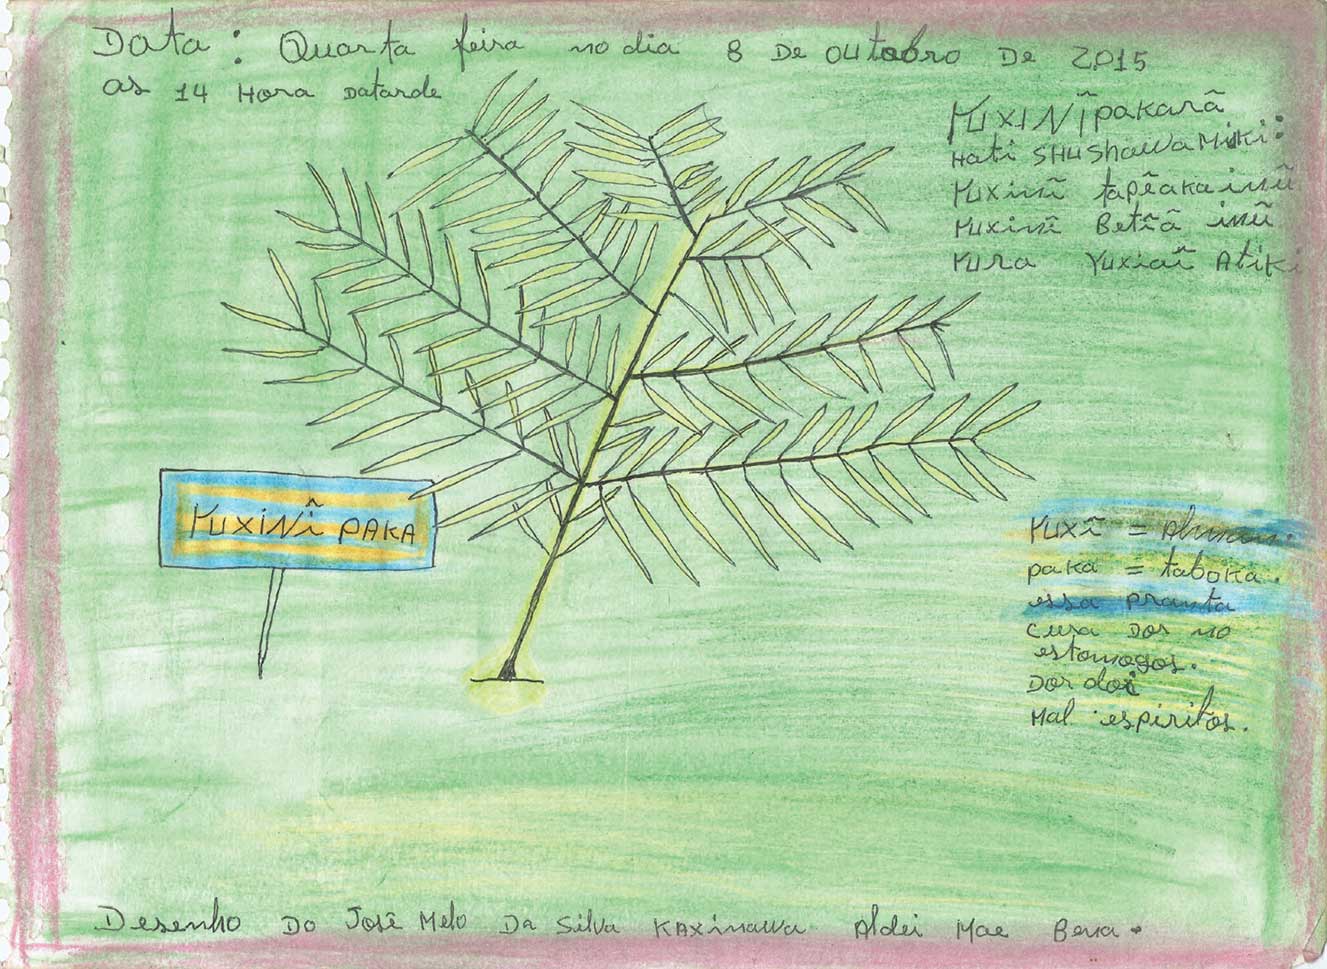 Data: Quarta feira no dia 8 De outobro De 2015
as 14 Hora Datarde
YuxiNĩpakarã
Hati SHuShawaMiki:
Yuxinĩ tapẽaka inũ
Yuxinĩ Betĩã inũ
Yura Yuxiaĩ Atiki
YuxiNĩ PAKA
Yuxĩ =
paka = taboka.
essa pranta
cura Dor no
estomagos.
Dor doi
Mal espiritos.
Desenho Do José Melo Da Silva Kaxinawa Aldei Mae Bena.